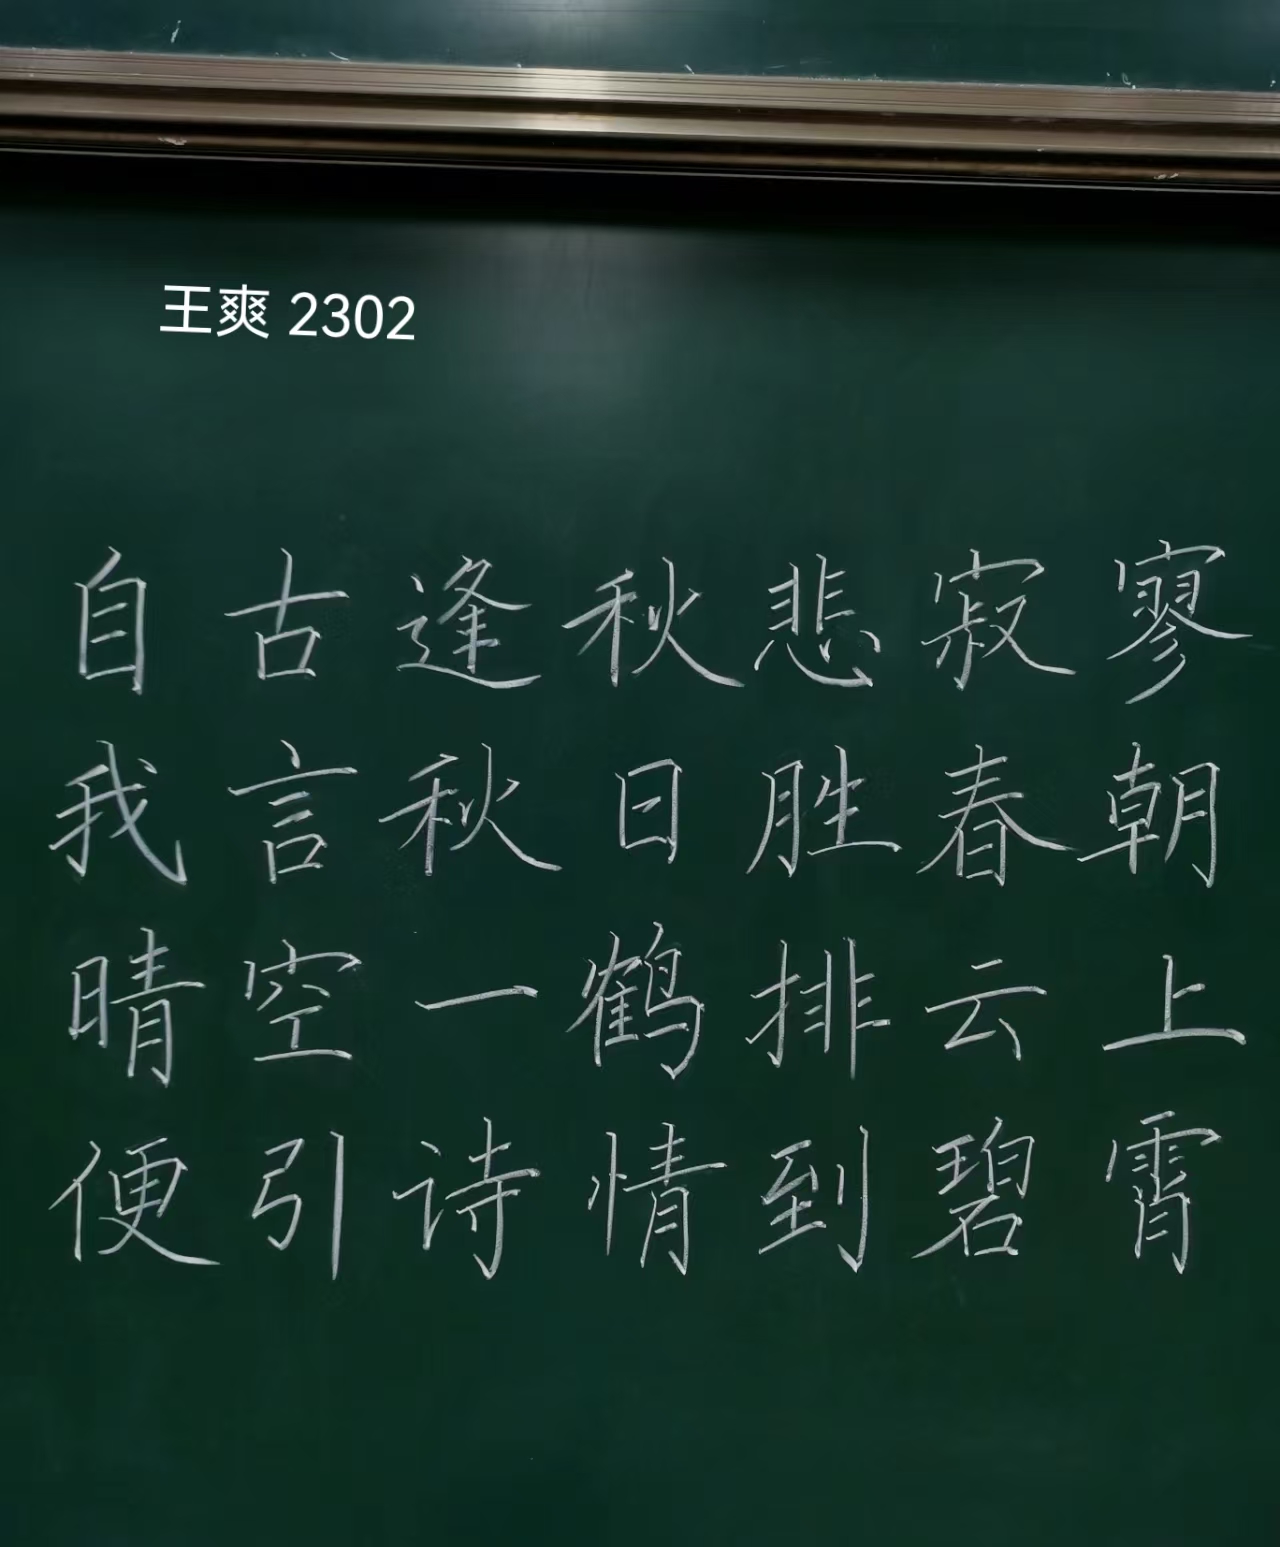 王爽 2302
自古逢秋悲寂寥
我言秋日胜春朝
晴空一鹤排云上
便引诗情到碧霄